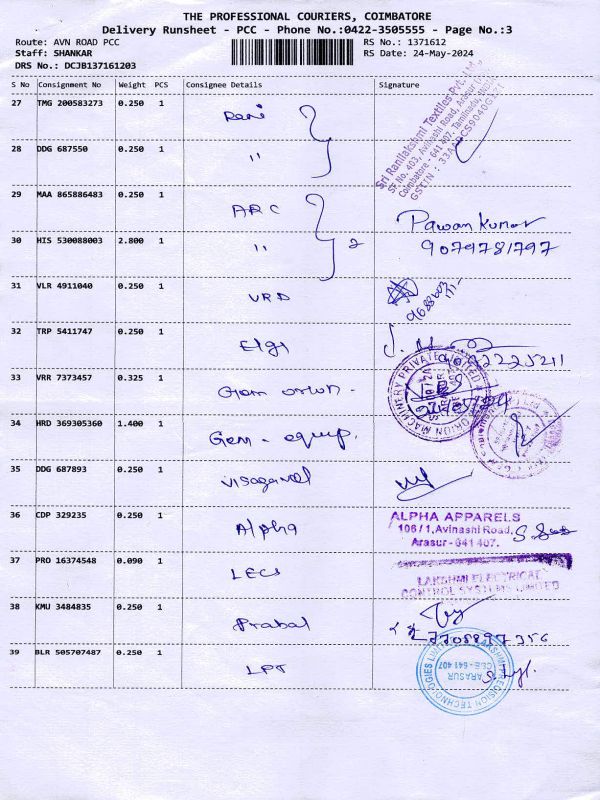 THE PROFESSIONAL COURIERS, COIMBATORE
Delivery Runsheet - PCC - Phone No.:0422-3505555 - Page No.:3
Route: AVN ROAD PCC RS No.: 1371612
Staff: SHANKAR RS Date: 24-May-2024
DRS No.: DCJB137161203
S No Consignment No Weight PCS Consignee Details Signature
27 TMG 200583273 0.250 1 Rani
Sri Ranilakshmi Textiles Pvt. Ltd.,
SF No. 403, Avinashi Road, Arasur
Coimbatore - 641 407. Tamilnadu,
GSTIN :
28 DDG 687550 0.250 1 "
29 MAA 865886483 0.250 1 ARC Pawan Kumar
30 HIS 530088003 2.800 1 " 2 9079781797
31 VLR 4911040 0.250 1 VRD
32 TRP 5411747 0.250 1 Elgi
33 VRR 7373457 0.325 1 Gem orion -
ORION MACHINERY PRIVATE LIMITED
34 HRD 369305360 1.400 1 Gem - equip.
35 DDG 687893 0.250 1 Visagavel
36 CDP 329235 0.250 1 Alpha
ALPHA APPARELS
106/1, Avinashi Road,
Arasur - 641 407.
37 PRO 16374548 0.090 1 LECS
LAKSHMI ELECTRICAL
CONTROL SYSTEMS LIMITED
38 KMU 3484835 0.250 1 Prabal
7708897356
39 BLR 505707487 0.250 1 LPT
LAKSHMI PRECISION TECHNOLOGIES LIMITED
ARASUR
CBE-641 407